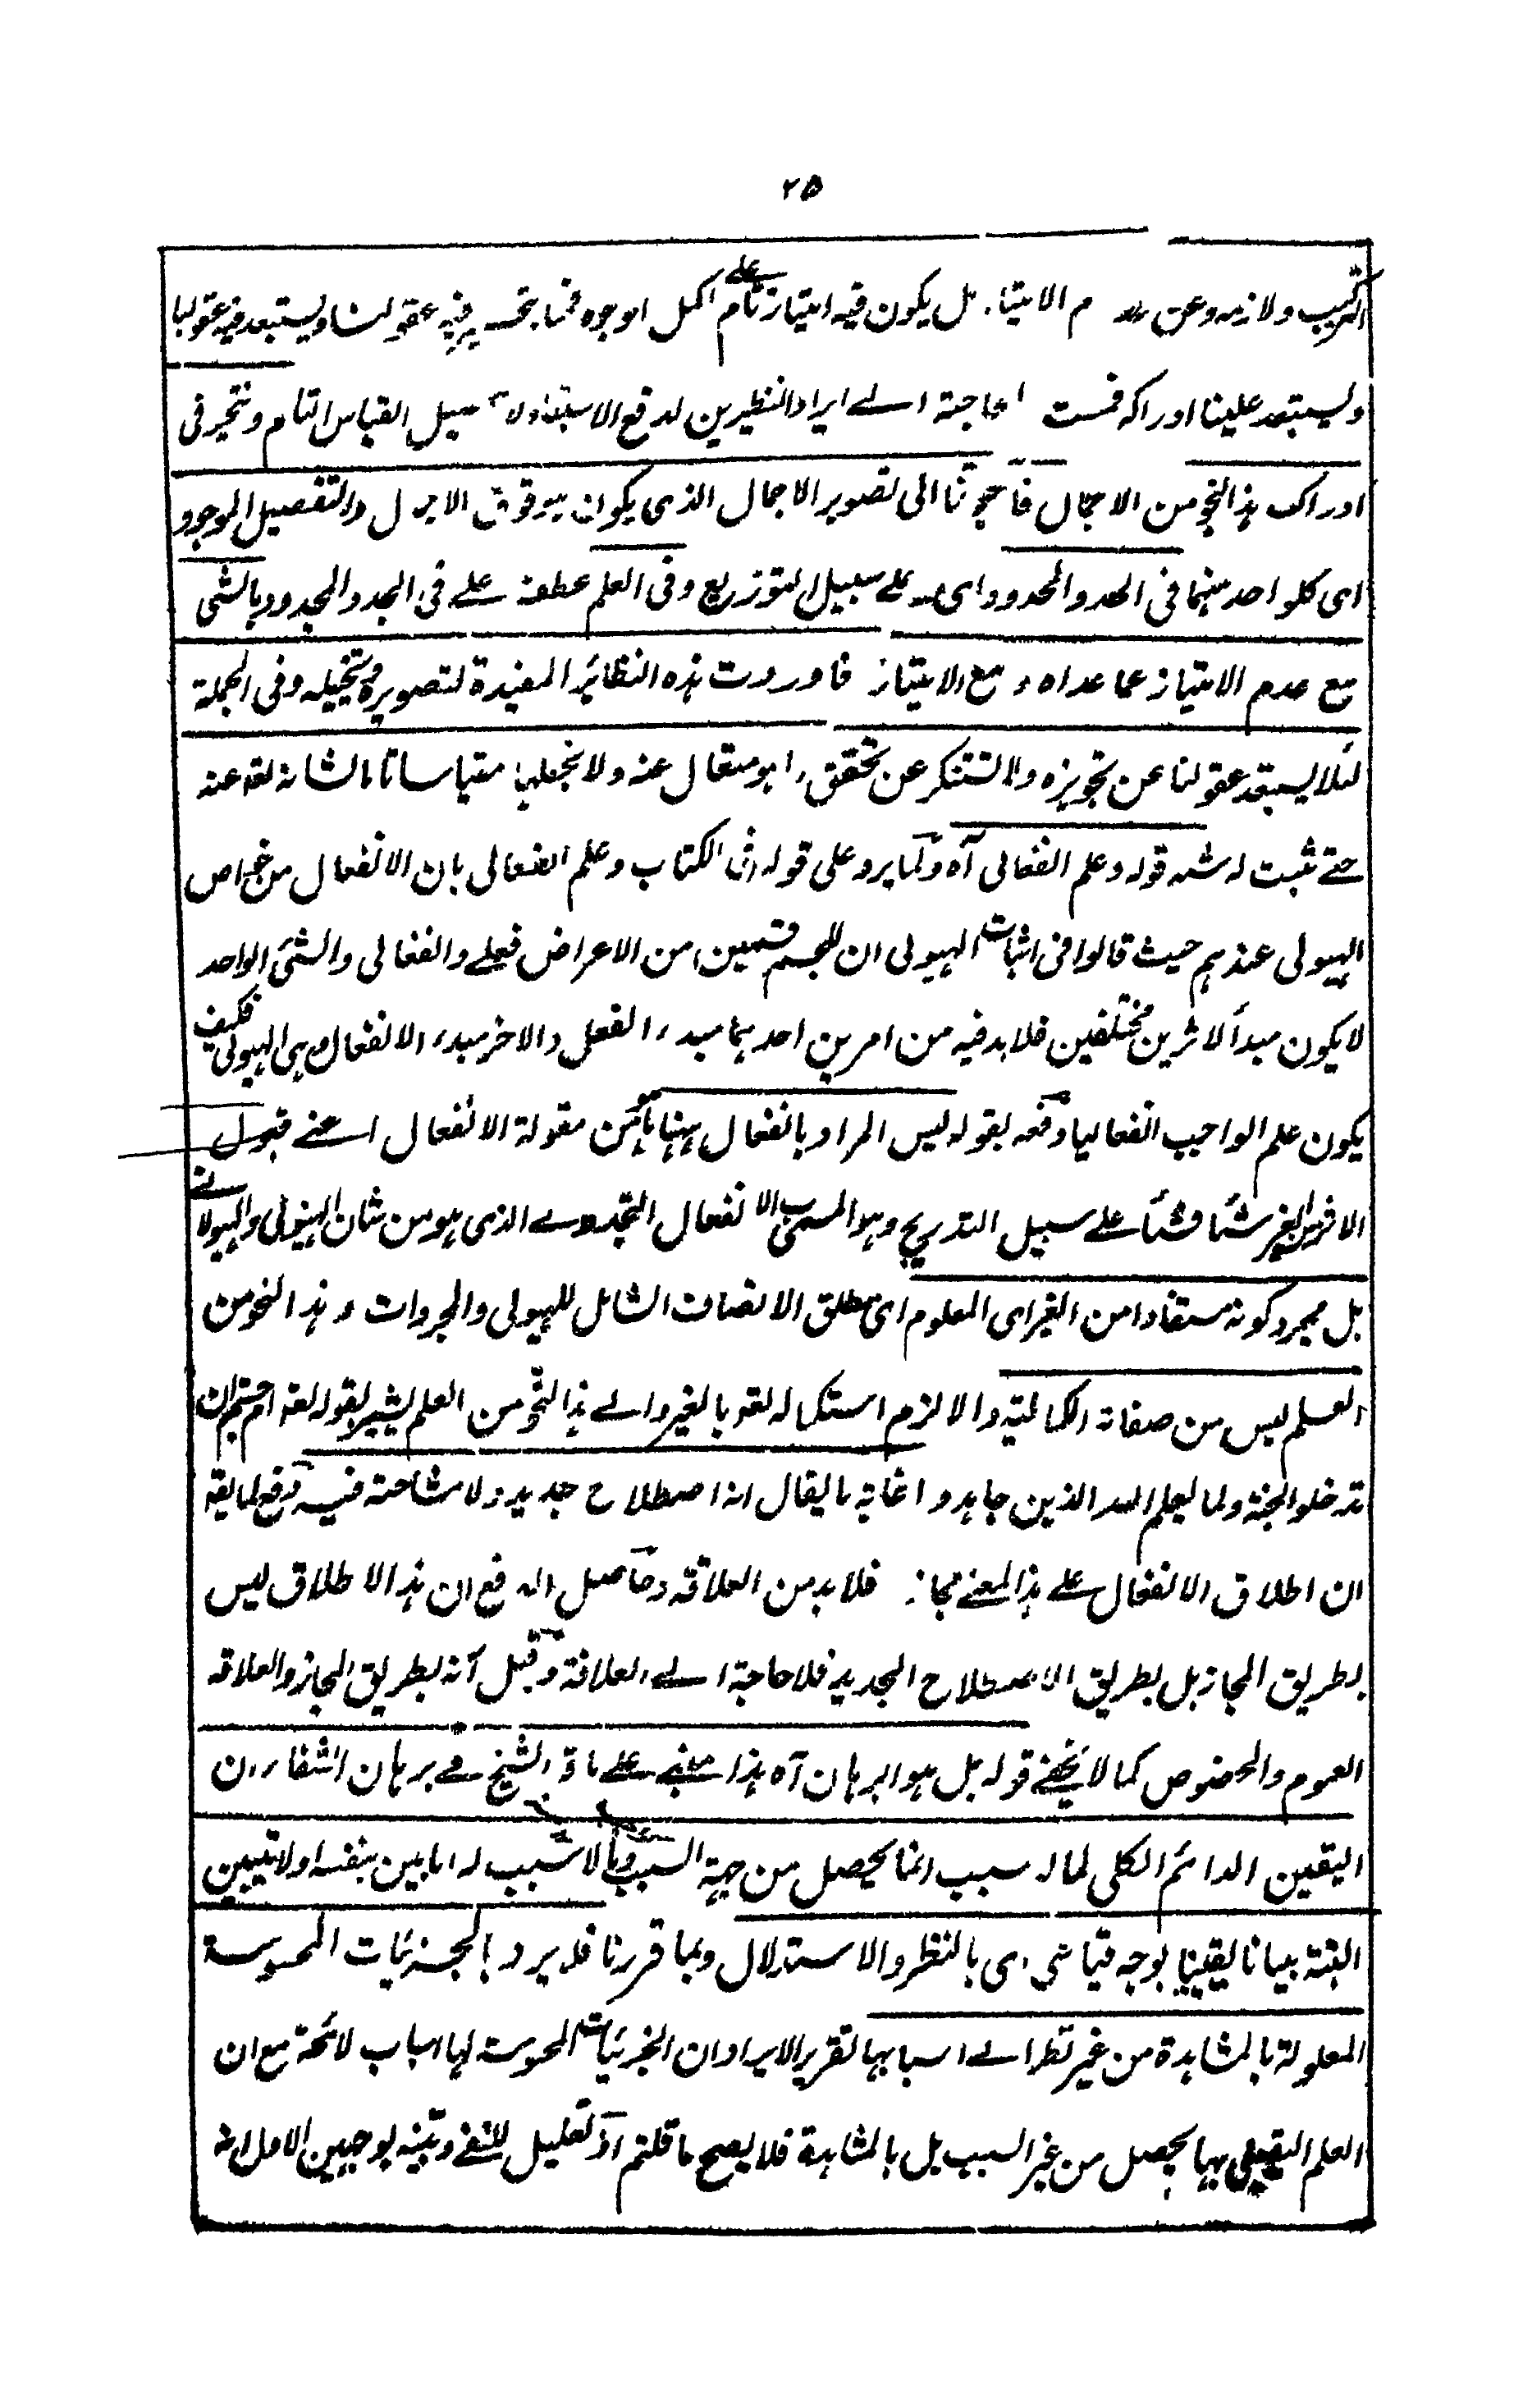 ٢٥
التركيب ولازمه وعن م الامتياز بل يكون فيه امتياز تام على اكمل الوجوه فمما يتحير فيه عقولنا ويستبعد فيه عقولنا
وليستبعد علينا ادراكه فمست الحاجة الے ايراد النظيرين لدفع الاستبعاد لا سبيل القياس التام ونتحير فى
ادراك هذا النحو من الاجمال فاحتجنا الى تصوير الاجمال الذى يكون هو فوق الاجمال والتفصيل الموجود
اى كلواحد منهما فى الحد والمحدود اى علے سبيل التوزيع وفى العلم عطف علے فى الحد والمحدود بالشئ
مع عدم الامتياز عما عداه و مع الامتياز فاوردت هذه النظائر المفيدة لتصويره وتخييله وفى الجملة
لئلا يستبعد عقولنا عن تجويزه ولا تستنكر عن تحقق ما هو متعال عنه ولا نجعلها مقياسا تاما لشانه تعه عنه
حتے ثبت له شه قوله وعلم انفعالى آه ولما يرد على قوله فى الكتاب وعلم انفعالى بان الانفعال من خواص
الهيولى عندهم حيث قالوا فى اثبات الهيولى ان للجسم قسمين من الاعراض فعلے وانفعالى والشئ الواحد
لا يكون مبدأ لاثرين مختلفين فلابد فيه من امرين احدهما مبدء الفعل والاخر مبدء الانفعال وهى الهيولى فكيف
يكون علم الواجب انفعاليا دفعه بقوله ليس المراد بانفعال ههنا ما هو من مقولة الانفعال اعنے قبول
الاثر من الغير شئا فشئا علے سبيل التدريج وهو المسمى بالانفعال التجددے الذى هو من شان الهيولى والهيولانے
بل مجرد كونه مستفادا من الغير اى المعلوم اى مطلق الاتصاف الشامل للهيولى والمجردات و هذا النحو من
العلم ليس من صفاته الكمالية والا لزم استكماله تعه بالغير والے هذا النحو من العلم يشير بقوله تعه ام حسبتم ان
تدخلوا الجنة ولما يعلم الله الذين جاهدوا غاية ما يقال انه اصطلاح جديد ولا مشاحة فيه دفع لما يقه
ان اطلاق الانفعال علے هذا المعنے مجاز فلابد من العلاقة وحاصل الدفع ان هذا الاطلاق ليس
بطريق المجاز بل بطريق الاصطلاح الجديد فلا حاجة الے العلاقة وقيل انه بطريق المجاز والعلاقه
العموم والخصوص كما لا يخفے قوله بل هو البرهان آه هذا مبنے علے ما ق الشيخ فے برهان الشفاء ان
اليقين الدائم الكلى لما له سبب انما يحصل من جهة السبب وما لا سبب له اما بين بنفسه او لا يتبين
البتة بيانا يقينيا بوجه قياسى اى بالنظر والاستدلال وبما قررنا فلا يرد بالجزئيات المحسوسة
المعلولة بالمشاهدة من غير نظر الے اسبابها تقرير الايراد ان الجزئيات المحسوسة لها اسباب لائحة مع ان
العلم اليقينى بها يحصل من غير السبب بل بالمشاهدة فلا يصح ما قلتم اذ تعليل للنفے وتبينه بوجهين الاول انه